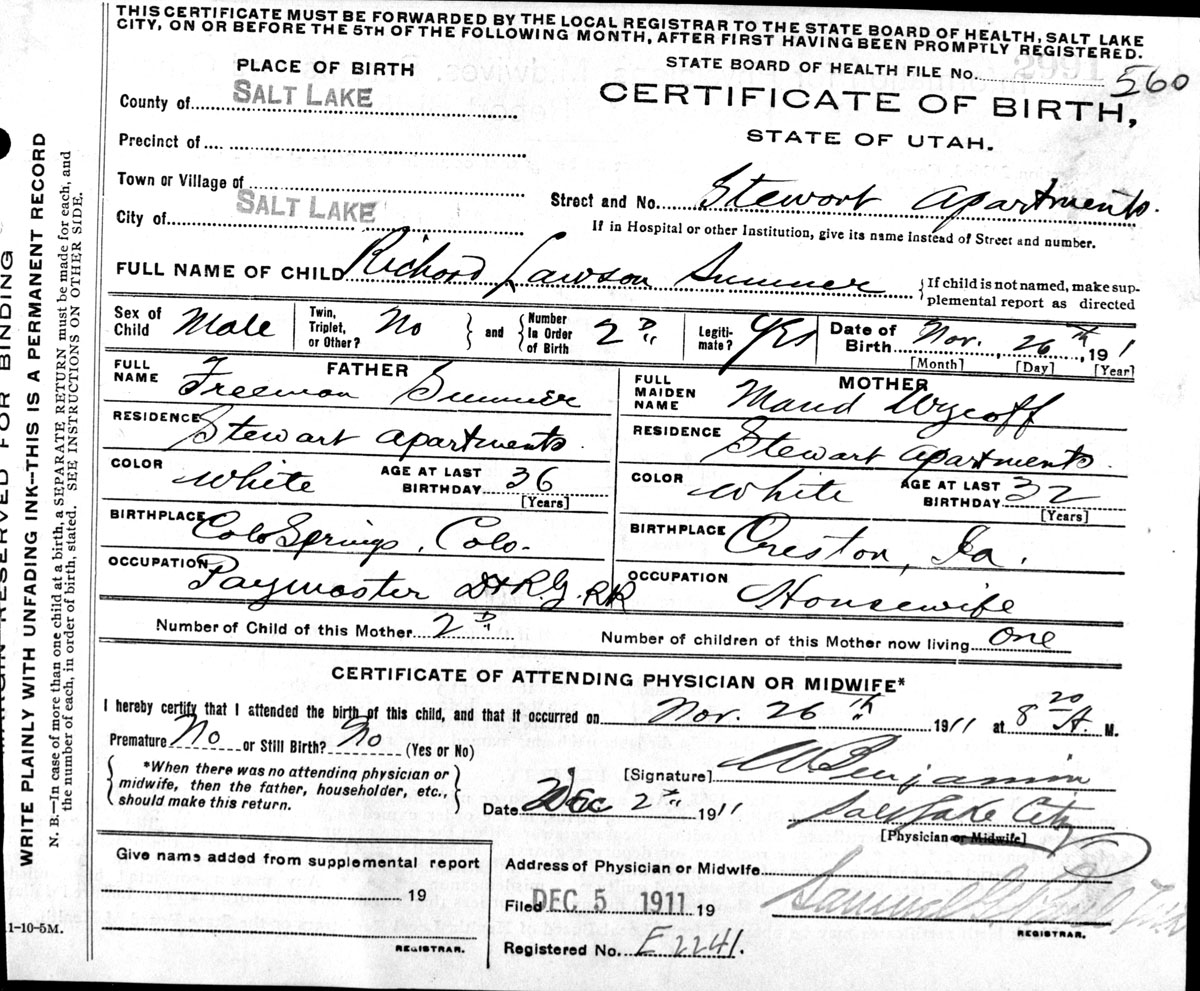 THIS CERTIFICATE MUST BE FORWARDED BY THE LOCAL REGISTRAR TO THE STATE BOARD OF HEALTH, SALT LAKE
CITY, ON OR BEFORE THE 5TH OF THE FOLLOWING MONTH, AFTER FIRST HAVING BEEN PROMPTLY REGISTERED.
PLACE OF BIRTH
STATE BOARD OF HEALTH FILE No. 560
County of SALT LAKE
CERTIFICATE OF BIRTH,
STATE OF UTAH.
Precinct of
Town or Village of
City of SALT LAKE
Street and No. Stewart Apartments.
If in Hospital or other Institution, give its name instead of Street and number.
FULL NAME OF CHILD Richard Lawson Sumner
{If child is not named, make sup-
plemental report as directed
Sex of Child Male Twin, Triplet, or Other? No } and { Number In Order of Birth 2D Legiti- mate? Yes Date of Birth Nov. 26th, 1911
[Month] [Day] [Year]
FATHER
FULL NAME Freeman Sumner
RESIDENCE Stewart Apartments.
COLOR White AGE AT LAST BIRTHDAY 36
[Years]
BIRTHPLACE Colo Springs, Colo.
OCCUPATION Paymaster D&R.G. RR
MOTHER
FULL MAIDEN NAME Maud Wycoff
RESIDENCE Stewart Apartments.
COLOR White AGE AT LAST BIRTHDAY 32
[Years]
BIRTHPLACE Creston, Ia.
OCCUPATION Housewife
Number of Child of this Mother 2D Number of children of this Mother now living one
CERTIFICATE OF ATTENDING PHYSICIAN OR MIDWIFE*
I hereby certify that I attended the birth of this child, and that it occurred on Nov. 26th 1911 at 8 20 A. M.
Premature No or Still Birth? No (Yes or No)
{*When there was no attending physician or
midwife, then the father, householder, etc.,
should make this return.}
[Signature] Benjamin
Date Dec 2 1911 Salt Lake City
[Physician or Midwife]
Give name added from supplemental report
19
REGISTRAR.
Address of Physician or Midwife
Filed DEC 5 1911 19
Samuel
REGISTRAR.
Registered No. E2241.
MARGIN RESERVED FOR BINDING
WRITE PLAINLY WITH UNFADING INK—THIS IS A PERMANENT RECORD
N. B.—In case of more than one child at a birth, a SEPARATE RETURN must be made for each, and
the number of each, in order of birth, stated. SEE INSTRUCTIONS ON OTHER SIDE.
1-10-5M.